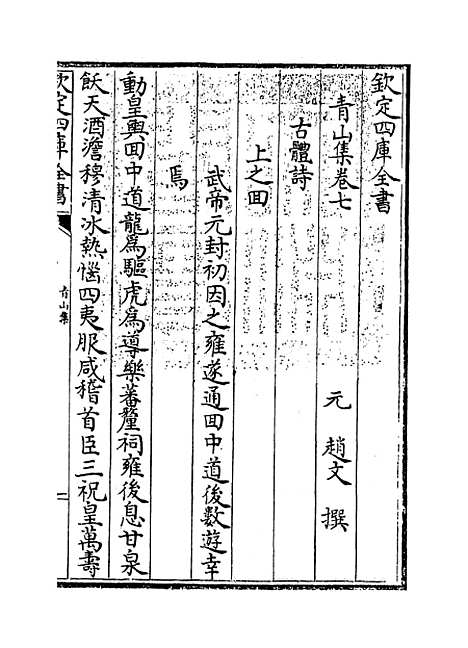 欽定四庫全書
青山集卷七
元 趙文 撰
古體詩
上之回
武帝元封初因之雍遂通回中道後數遊幸
焉
動皇輿回中道龍為驅虎為導樂蕃釐祠雍後息甘泉
飫天酒澹穆清冰熱惱四夷服咸稽首臣三祝皇萬壽
欽定四庫全書
青山集
一